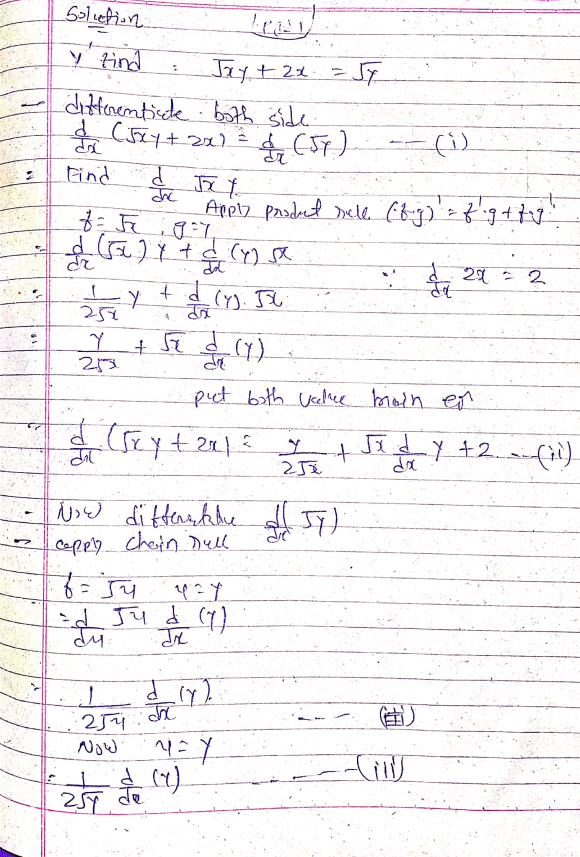 Solution
y' find : √xy + 2x = √y
– differentiate both side
d/dx (√x y + 2x) = d/dx (√y) --- (i)
= Find d/dx √x y.
Apply product rule. (f·g)' = f'·g + f·g'
f = √x , g = y
= d/dx (√x) y + d/dx (y) √x
∵ d/dx 2x = 2
1/2√x y + d/dx (y). √x
= y/2√x + √x d/dx (y)
put both value main eqn
d/dx (√x y + 2x) = y/2√x + √x d/dx y + 2 --- (ii)
- Now differentiate d/dx (√y)
- apply chain rule
f = √u u = y
= d/du √u d/dx (y)
1/2√u . d/dx (y). ---
Now u = y
= 1/2√y d/dx (y) ----- (iii)